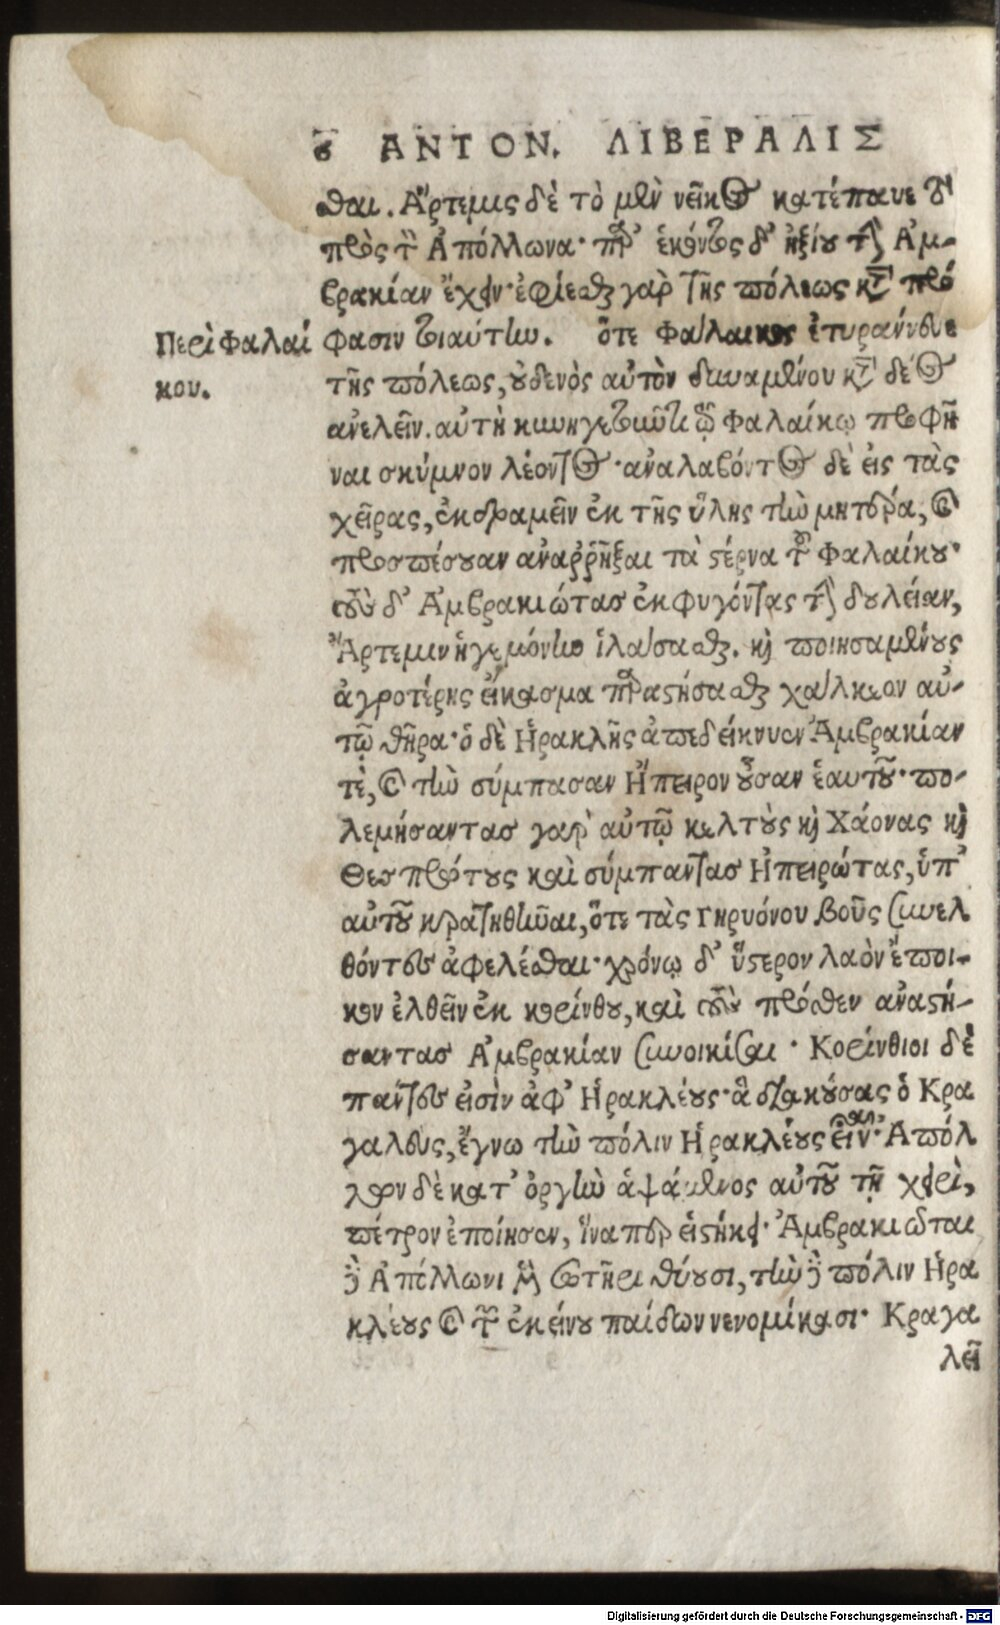 ȣ ΑΝΤΟΝ. ΛΙΒΕΡΑΛΙΣ
σθαι. Ἄρτεμις δὲ τὸ μὲν νεῖκος κατέπαυε τὸ
πρὸς τὸν Ἀπόλλωνα· παρ' ἑκόντος δ' ἠξίου τὴν Ἀμ-
βρακίαν ἔχειν· ἐφίεσθαι γὰρ τῆς πόλεως κατὰ πρό
Περὶ Φαλαί
κου.
φασιν τοιαύτην. ὅτε Φάλαικος ἐτυράννευε
τῆς πόλεως, οὐδενὸς αὐτὸν δυναμένου κατὰ δέος
ἀνελεῖν. αὐτὴ κυνηγετοῦντι τῷ Φαλαίκῳ προφῆ
ναι σκύμνον λέοντος· ἀναλαβόντος δὲ εἰς τὰς
χεῖρας, ἐκδραμεῖν ἐκ τῆς ὕλης τὴν μητέρα, καὶ
προσπέσουσαν ἀναῤῥῆξαι τὰ στέρνα τοῦ Φαλαίκου·
τοὺς δ' Ἀμβρακιώτας ἐκφυγόντας τὴν δουλείαν,
Ἄρτεμιν ἡγεμόνην ἱλάσασθαι. καὶ ποιησαμένους
ἀγροτέρης εἴκασμα παραστήσασθαι χάλκεον αὐ-
τῷ θῆρα· ὁ δὲ Ἡρακλῆς ἀπεδείκνυεν Ἀμβρακίαν
τὲ, καὶ τὴν σύμπασαν Ἤπειρον οὖσαν ἑαυτοῦ· πο-
λεμήσαντας γὰρ αὐτῷ κελτοὺς καὶ Χάονας καὶ
Θεσπρότους καὶ σύμπαντας Ἠπειρώτας, ὑπ'
αὐτοῦ κρατηθῆναι, ὅτε τὰς Γηρυόνου βοῦς συνελ
θόντες ἀφελέσθαι· χρόνῳ δ' ὕστερον λαὸν ἔποι-
κον ἐλθεῖν ἐκ κορίνθου, καὶ τοὺς πρόσθεν ἀναστή-
σαντας Ἀμβρακίαν συνοικίσαι· Κορίνθιοι δὲ
πάντες εἰσὶν ἀφ' Ἡρακλέους· ἃ διακούσας ὁ Κρα
γαλεὺς, ἔγνω τὴν πόλιν Ἡρακλέους εἶναι· Ἀπόλ
λων δὲ κατ' ὀργὴν ἁψάμενος αὐτοῦ τῇ χειρὶ,
πέτρον ἐποίησεν, ἵναπερ εἱστήκει· Ἀμβρακιῶται
δὲ Ἀπόλλωνι μὲν Σωτῆρι θύουσι, τὴν δὲ πόλιν Ἡρα
κλέους καὶ τῶν ἐκείνου παίδων νενομίκασι· Κραγα
λεῖ
Digitalisierung gefördert durch die Deutsche Forschungsgemeinschaft - DFG